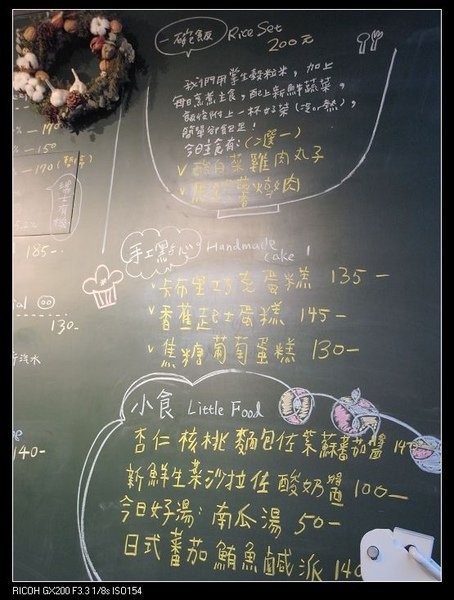 一碗飯 Rice Set
200元
我們用養生穀粒米,加上
每日烹煮主食,配上新鮮蔬菜,
飯後附上一杯好茶(冷or熱),
簡單卻富足!
今日主食有:(2選一)
v 酸白菜雞肉丸子
燒肉
-170
-150
-170(暫停)
185-
手工點心 Handmade
cake!
v 卡布里巧克蛋糕 135-
v 香蕉起士蛋糕 145-
v 焦糖葡萄蛋糕 130-
130-
汽水
140-
小食 Little Food
杏仁核桃麵包佐紫蘇蕃茄醬 14
新鮮生菜沙拉佐酸奶醬 100-
今日好湯:南瓜湯 50-
日式蕃茄鮪魚鹹派 140
RICOH GX200 F3.3 1/8s ISO154